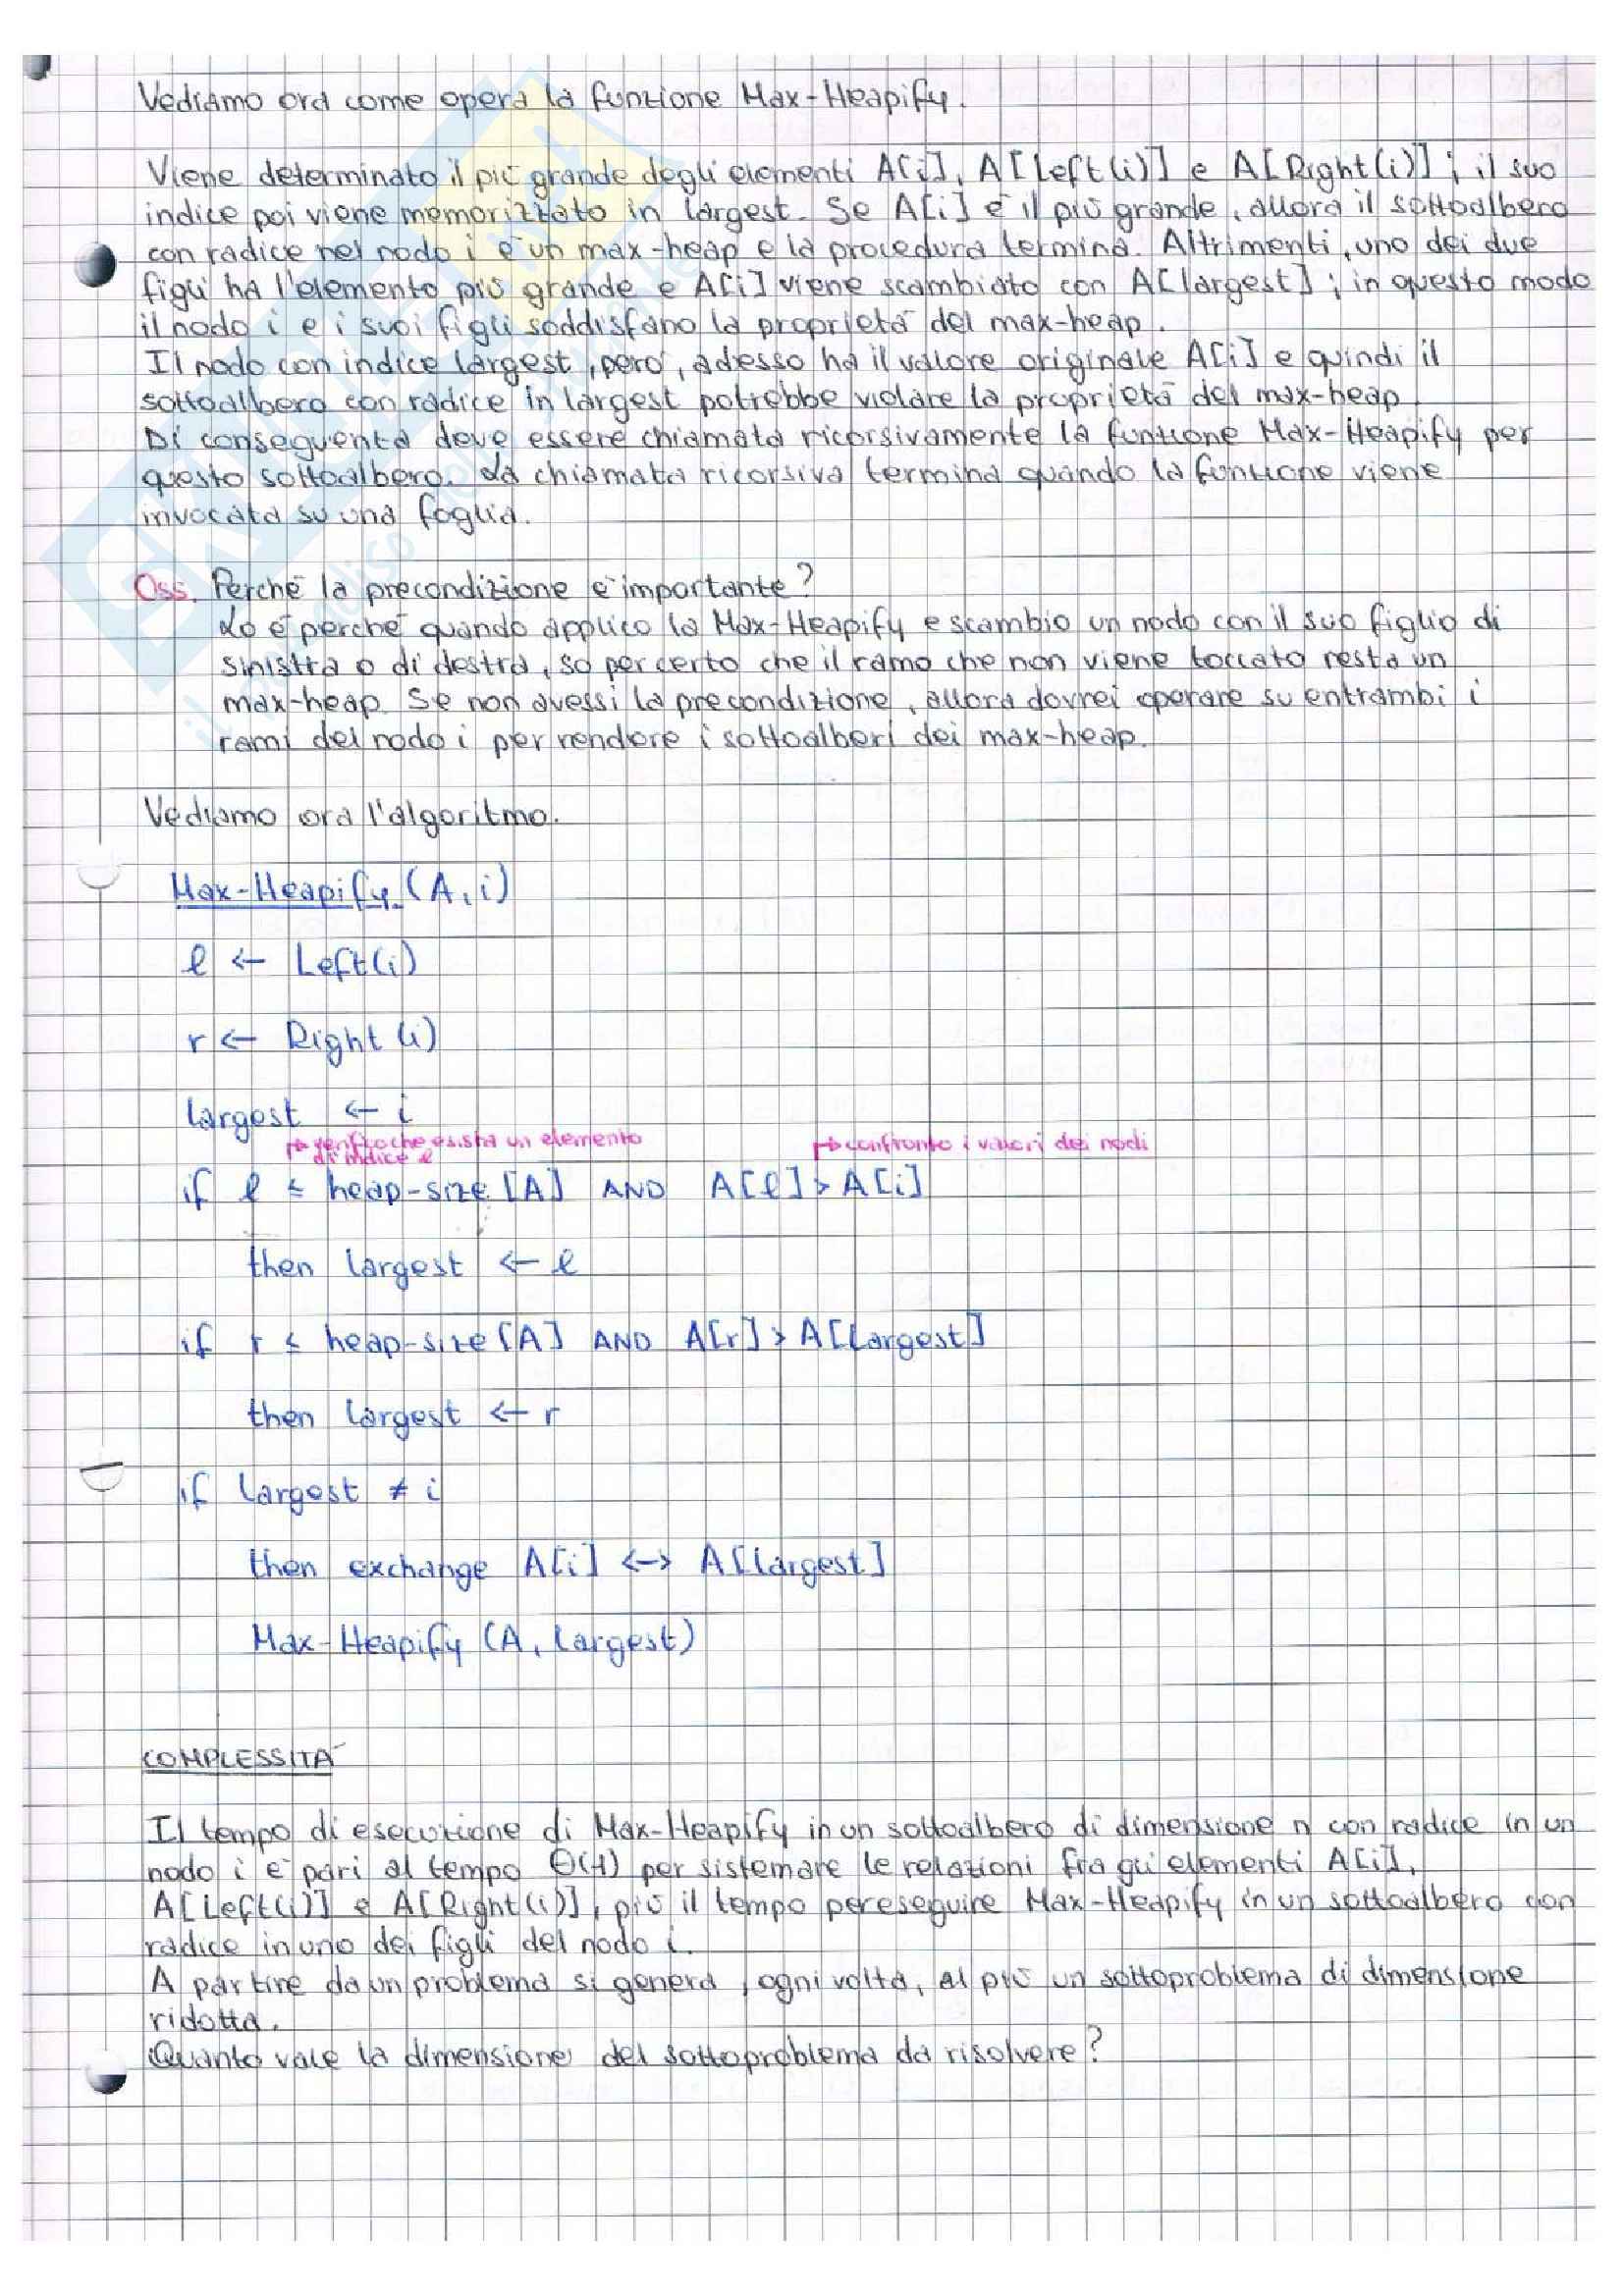 Vediamo ora come opera la funzione Max-Heapify.
Viene determinato il più grande degli elementi A[i], A[Left(i)] e A[Right(i)]; il suo
indice poi viene memorizzato in largest. Se A[i] è il più grande, allora il sottoalbero
con radice nel nodo i è un max-heap e la procedura termina. Altrimenti, uno dei due
figli ha l'elemento più grande e A[i] viene scambiato con A[largest]; in questo modo
il nodo i e i suoi figli soddisfano la proprietà del max-heap.
Il nodo con indice largest, però, adesso ha il valore originale A[i] e quindi il
sottoalbero con radice in largest potrebbe violare la proprietà del max-heap.
Di conseguenza deve essere chiamata ricorsivamente la funzione Max-Heapify per
questo sottoalbero. La chiamata ricorsiva termina quando la funzione viene
invocata su una foglia.
Oss. Perché la precondizione è importante?
Lo è perché quando applico la Max-Heapify e scambio un nodo con il suo figlio di
sinistra o di destra, so per certo che il ramo che non viene toccato resta un
max-heap. Se non avessi la precondizione, allora dovrei operare su entrambi i
rami del nodo i per rendere i sottoalberi dei max-heap.
Vediamo ora l'algoritmo.
Max-Heapify (A, i)
ℓ ← Left(i)
r ← Right(i)
largest ← i
↦ verifico che esista un elemento di indice ℓ ↦ confronto i valori dei nodi
if ℓ ≤ heap-size [A] AND A[ℓ] > A[i]
then largest ← ℓ
if r ≤ heap-size [A] AND A[r] > A[largest]
then largest ← r
if largest ≠ i
then exchange A[i] ↔ A[largest]
Max-Heapify (A, largest)
COMPLESSITÀ
Il tempo di esecuzione di Max-Heapify in un sottoalbero di dimensione n con radice in un
nodo i è pari al tempo Θ(1) per sistemare le relazioni fra gli elementi A[i],
A[Left(i)] e A[Right(i)], più il tempo per eseguire Max-Heapify in un sottoalbero con
radice in uno dei figli del nodo i.
A partire da un problema si genera, ogni volta, al più un sottoproblema di dimensione
ridotta.
Quanto vale la dimensione del sottoproblema da risolvere?